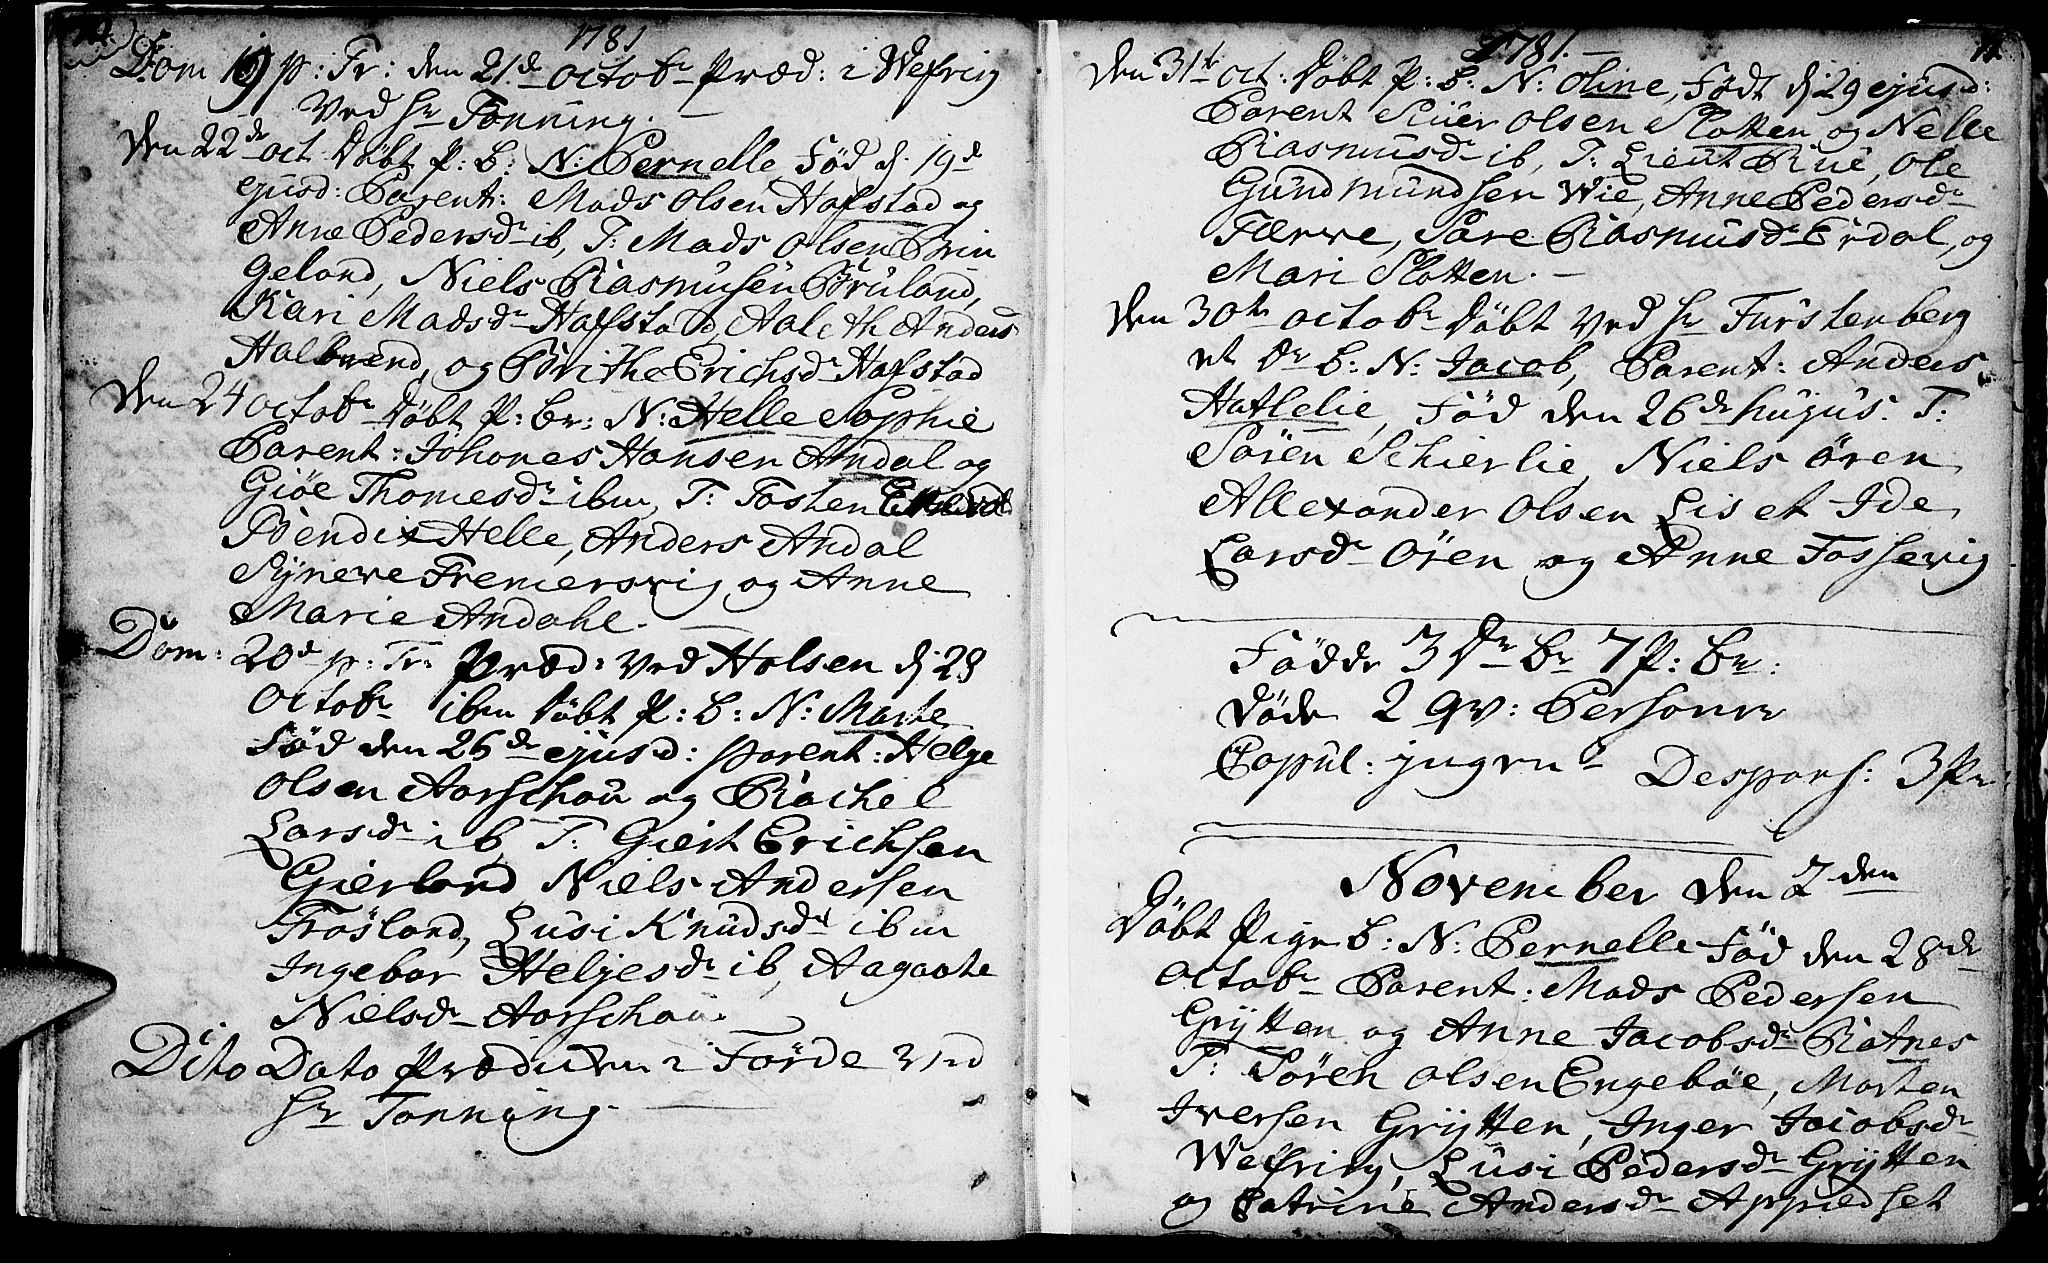 1781
Dom 19 p: Tr: den 21de octobr Præd: i Wefring
Ved Hr Tonning.
Den 22de oct. Døbt P: B: N: Pernelle Fød d. 19d
ejusd: Parent: Mads Olsen Hafstad og
Anne Pedersdr ib, T: Mads Olsen Brin
geland, Niels Rasmusen Bruland,
Kari Madsdr Hafstad, Aaleth Anders
Halbrend, og Brithe Erichsdr Hafstad
Den 24 octobr Døbt P: Br: N: Helle Sophie
Parent: Johanes Hansen Andal og
Giøe Thomesdr ibm, T: Tosten
Bendix Helle, Anders Andal
Syneve Fremersvig og Anne
Marie Andahl.
Dom: 20d p: Tr: Præd: Ved Holsen d 28
Octobr ibm Døbt P: B: N: Marte
Fød den 26de ejusd: parent: Helge
Olsen Aarschou og Rachel
Larsdr ib, T: Giert Erichsen
Gierland Niels Andersen
Frøsland, Lusi Knudsdr ibm
Ingebor Heljesdr ib, Aagaate
Nielsdr Aarschou.
Dito Dato Prædicken i Førde Ved
Hr Tonning.
1781. 11
Den 31t oct: Døbt P: B: N: Oline, Født d 29 ejusd:
Parent Siuer Olsen Slotten og Nelle
Rasmusdr ib, T: Lieut Riis, Ole
Gundmundsen Wie, Anne Pedersdr
Færre, Sare Rasmusdr Erdal, og
Mari Slotten.
Den 30te octobr Døbt Ved Hr Furstenberg
et Dr B: N: Jacob, Parent: Anders
Hatlelie, Fød den 26de hujus. T:
Søren Schierlie, Niels Øren
Allexander Olsen Liset Ide
Larsdr Øren og Anne Fossevig
Fødde 3 Dr Br 7 P: Br:
Døde 2 Qv: Personer
Copul: jngen Despons: 3 Pr
November den 2den
Døbt Pige B: N: Pernelle Fød den 28de
Octobr Parent: Mads Pedersen
Grytten og Anne Jacobsdr Ratnes
T: Søren Olsen Engebøe, Morten
Iversen Grytten, Inger Jacobsdr
Wefring, Lusi Pedersdr Grytten
og Catrine Andersdr Appredset